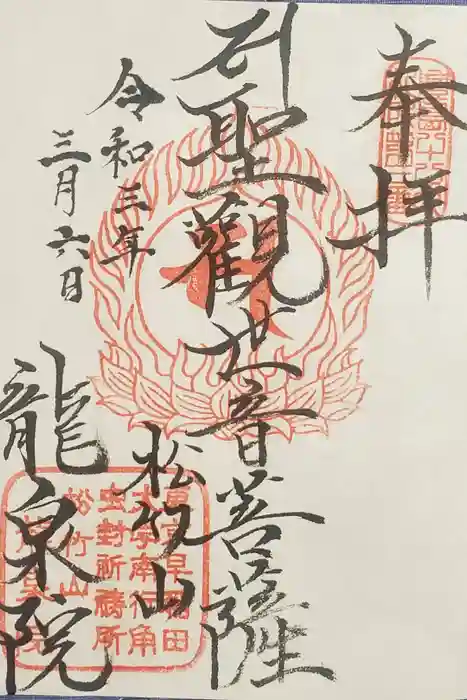 奉拝
聖觀世音菩薩
令和三年
三月六日
松竹山
龍泉院
東京早稲田
大学南角
虫封祈禱所
松竹山
龍泉院